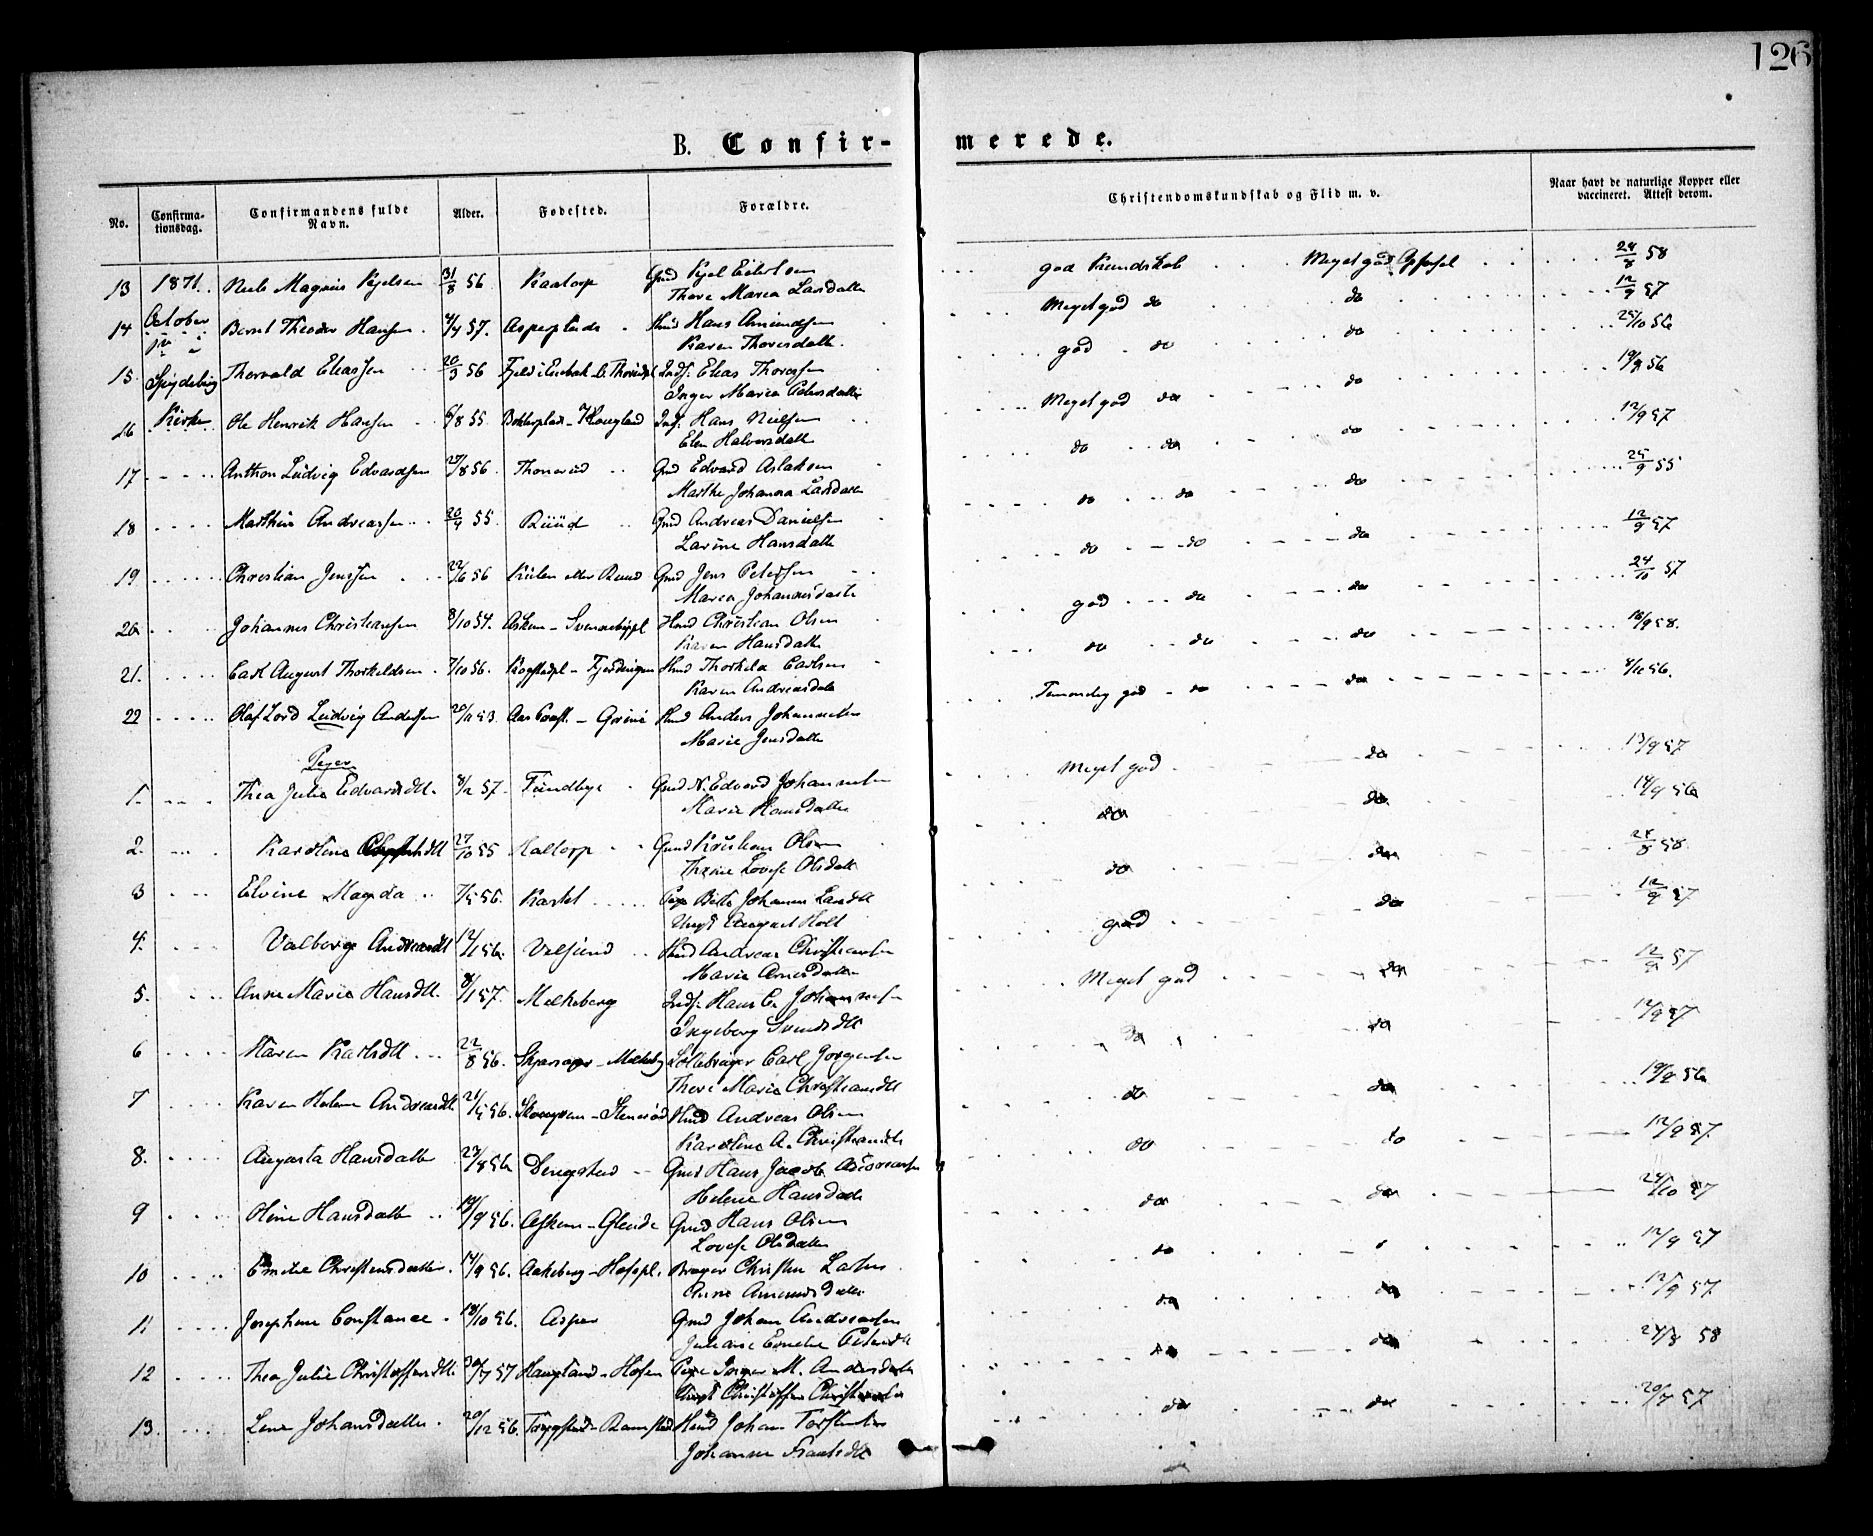 126
B. Confir-
merede.
No.
Confirma-
tionsdag.
Confirmandens fulde
Navn.
Alder.
Fødested.
Forældre.
Christendomskundskab og Flid m. v.
Naar havt de naturlige Kopper eller
vaccineret. Attest derom.
13 1871. Neels Magnus Kjelsen 31/8 56 Gmd Kjel Eilertsen god Kundskab Meget god Opførsel 28/8 58
Thore Maren Larsdatter Meget god do do 12/9 57
14 October Bernt Theodor Hansen 4/4 57. Hans Amundsen
Karen Thoresdatter god do do 25/10 56
15 Spydeberg Thorvald Eliassen 20/3 56 Inds: Elias Thoressen
Inger Marie Pedersdatter Meget god do do 19/9 56
16 Kirke Ole Henrik Hansen 6/8 55 Inds: Hans Nielsen
Elen Halvorsdatter do do do 12/9 57
17 Anthon Ludvig Edvardsen 27/8 56 Thonerud Gmd Edvard Aslaksen
Marthe Johanna Larsdatter do do do 25/9 55
18 Marthin Andreassen 20/4 55 Ruud Gmd Andreas Danielsen
Larine Hansdatter do do do 12/9 57
19 Christian Jenssen 22/6 56 Kulen eller Ruud Gmd Jens Petersen
Maren Johannesdatter god do do 24/10 57
20 Johannes Christiansen 8/10 54. Hmd Christian Olsen
Karen Hansdatter do do do 18/9 58.
21. Carl August Thorkeldsen 7/10 56. Hmd Thorkeld Carlsen
Karen Andreasdatter Temmelig god do do 8/10 56.
22 Olaf Lord Ludvig Andersen 20/11 53 Hmd Anders Johannesen
Marie Jensdatter
Piger
1. Thea Julie Edvardsdtt. 8/2 57. Gmd N. Edvard Johannesen Meget god do 13/9 57
Marie Hansdatter
2. Karoline 27/10 55 Kaltorp Gmd Kristian Olsen do do 14/9 56
Lovise Olsdatter
3 Elvine Magda 7/5 56. Pige Johanne Larsdtt do do 28/8 58
Ungk August Holt
4. Valborg Andreasdtt 12/1 56. Velsund Hmd Andreas Christiansen god do 12/9 57
Marie Arnesdatter
5. Anne Marie Hansdtt. 8/1 57. Melkeberg Inds: Hans C. Johannesen Meget god do 12/9 57
Ingeborg Svendsdtt
6 Maren Karlsdtt 22/8 56. Carl Jørgensen do do 12/9 57
Thore Marie Christiansdtt
7 Karen Helene Andreasdtt. 21/5 56. Hmd Andreas Olsen do do 19/9 56
Karoline A. Christiansdtt
8. Augusta Hansdatter 23/8 56 Dengstad Gmd Hans Jacob do do 12/9 57
Helene Hansdatter
9 Oline Hansdatter 19/9 56. Askum - Glende Gmd Hans Olsen do do 24/10 57
Lovise Olsdatter
10 Emelie Christensdatter. 14/9 56. Aakeberg - Hofspl. Bruger Christen Larsen do 12/9 57
Anne Amundsdatter
11 Josephine Constance 18/10 56. Asper Gmd Johan Andreasen do do 12/9 57
Juliane Emelie Petersdtt
12 Thea Julie Christoffersdtt. 30/7 57 Haugland - Hofen Pige Inger M. Andersdatter do do 24/8 58
Ungk Christoffer Christensen
13. Lene Johansdatter. 20/12 56. Trygstad - Ramstad Hmd Johan Torstensen do do 20/7 57
Johanne Frantsdtt